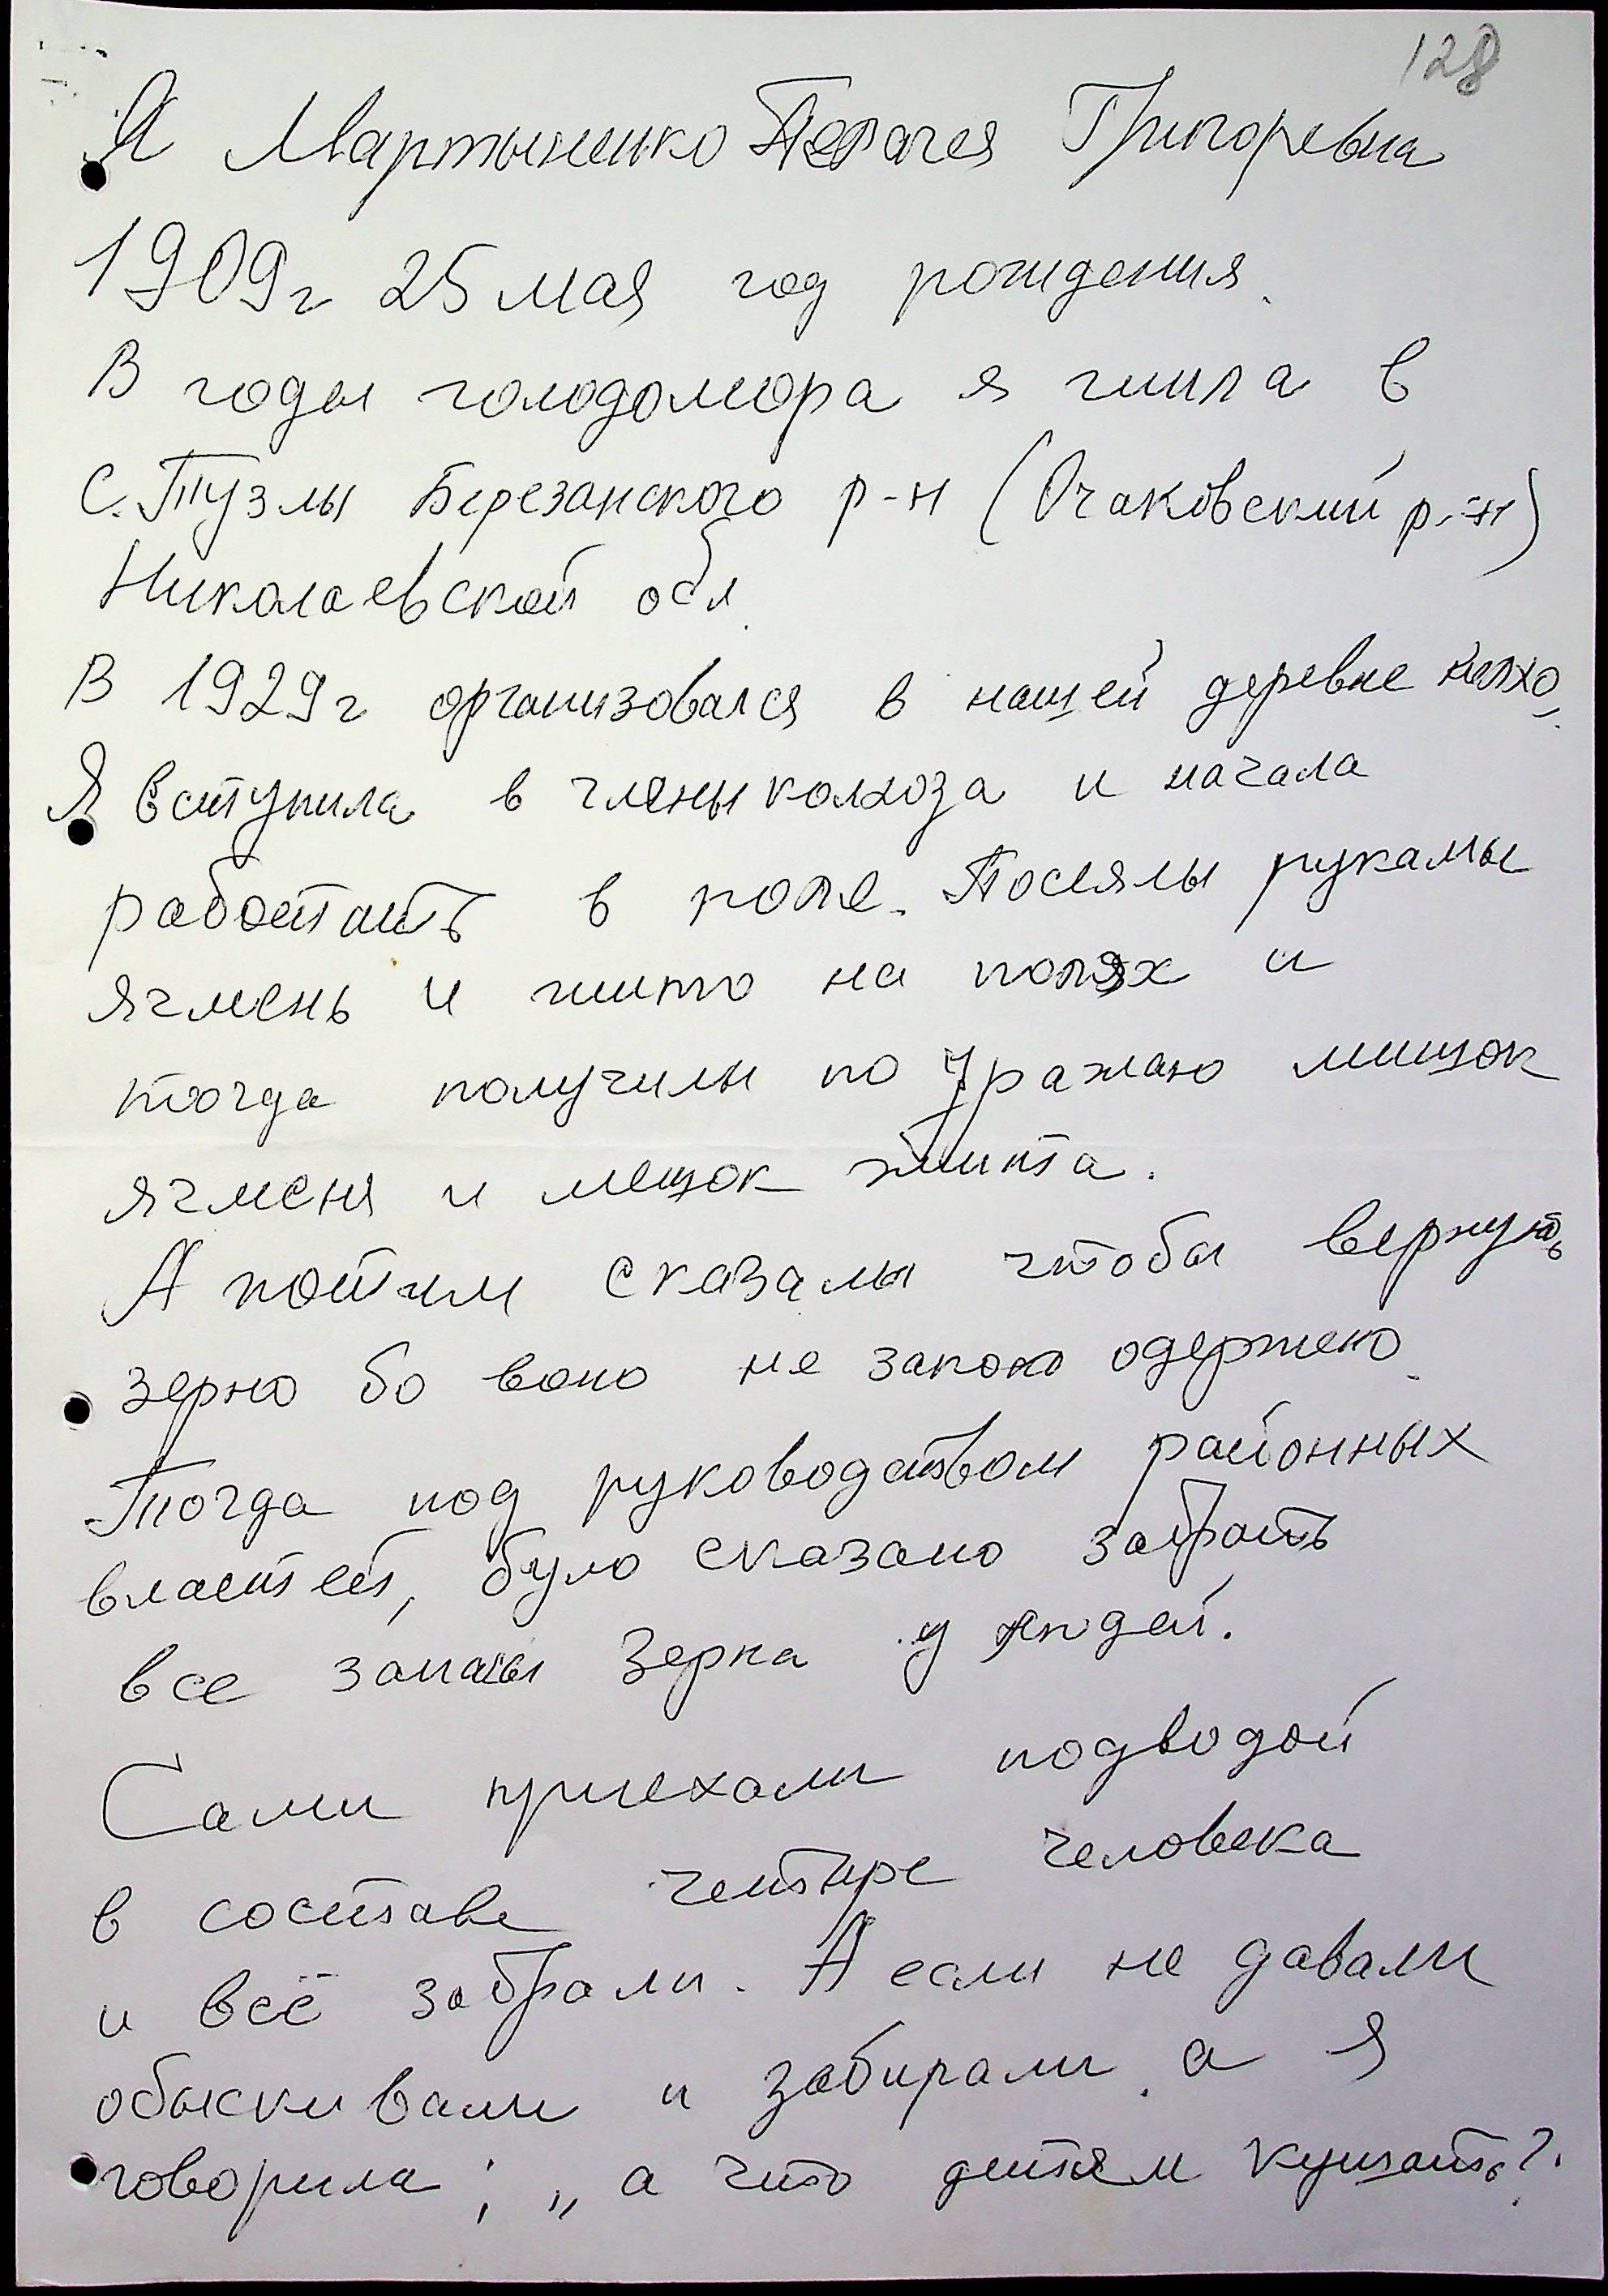 128
Я Мартыненко Пелагея Григоревна
1909г 25 мая год рождения.
В годы голодомора я жила в
с. Тузлы Березанского р-н (Очаковский р-н)
Николаевской обл.
В 1929г организовался в нашей деревне колхо
Я вступила в члены колхоза и начала
работать в поле. Посеялы рукамы
ячмень и жито на полях и
тогда получилы по уражаю мишок
ячменя и мешок жыта.
А потим сказалы чтобы вернуть
зерно бо воно не законо одержено.
Тогда под руководством районных
властей, було сказано забрать
все запасы зерна у людей.
Сами приехали подводой
в составе четыре человека
и всё забрали. А если не давали
обыскивали и забирали. а я
говорила; „а что детям кушать?.